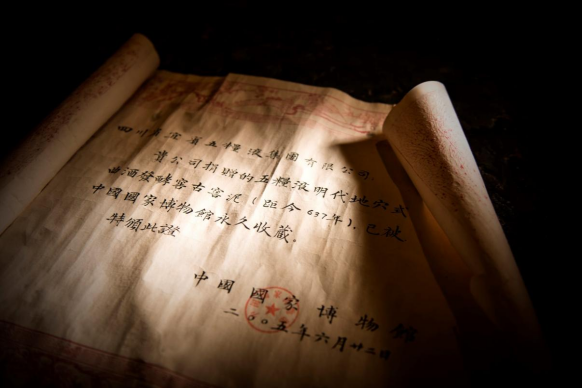 四川省宜賓五糧液集團有限公司:
貴公司捐贈的五糧液明代地穴式
曲酒發酵窖古窖泥(距今637年),已被
中國國家博物館永久收藏。
特頒此證
中國國家博物館
二00五年六月廿二日